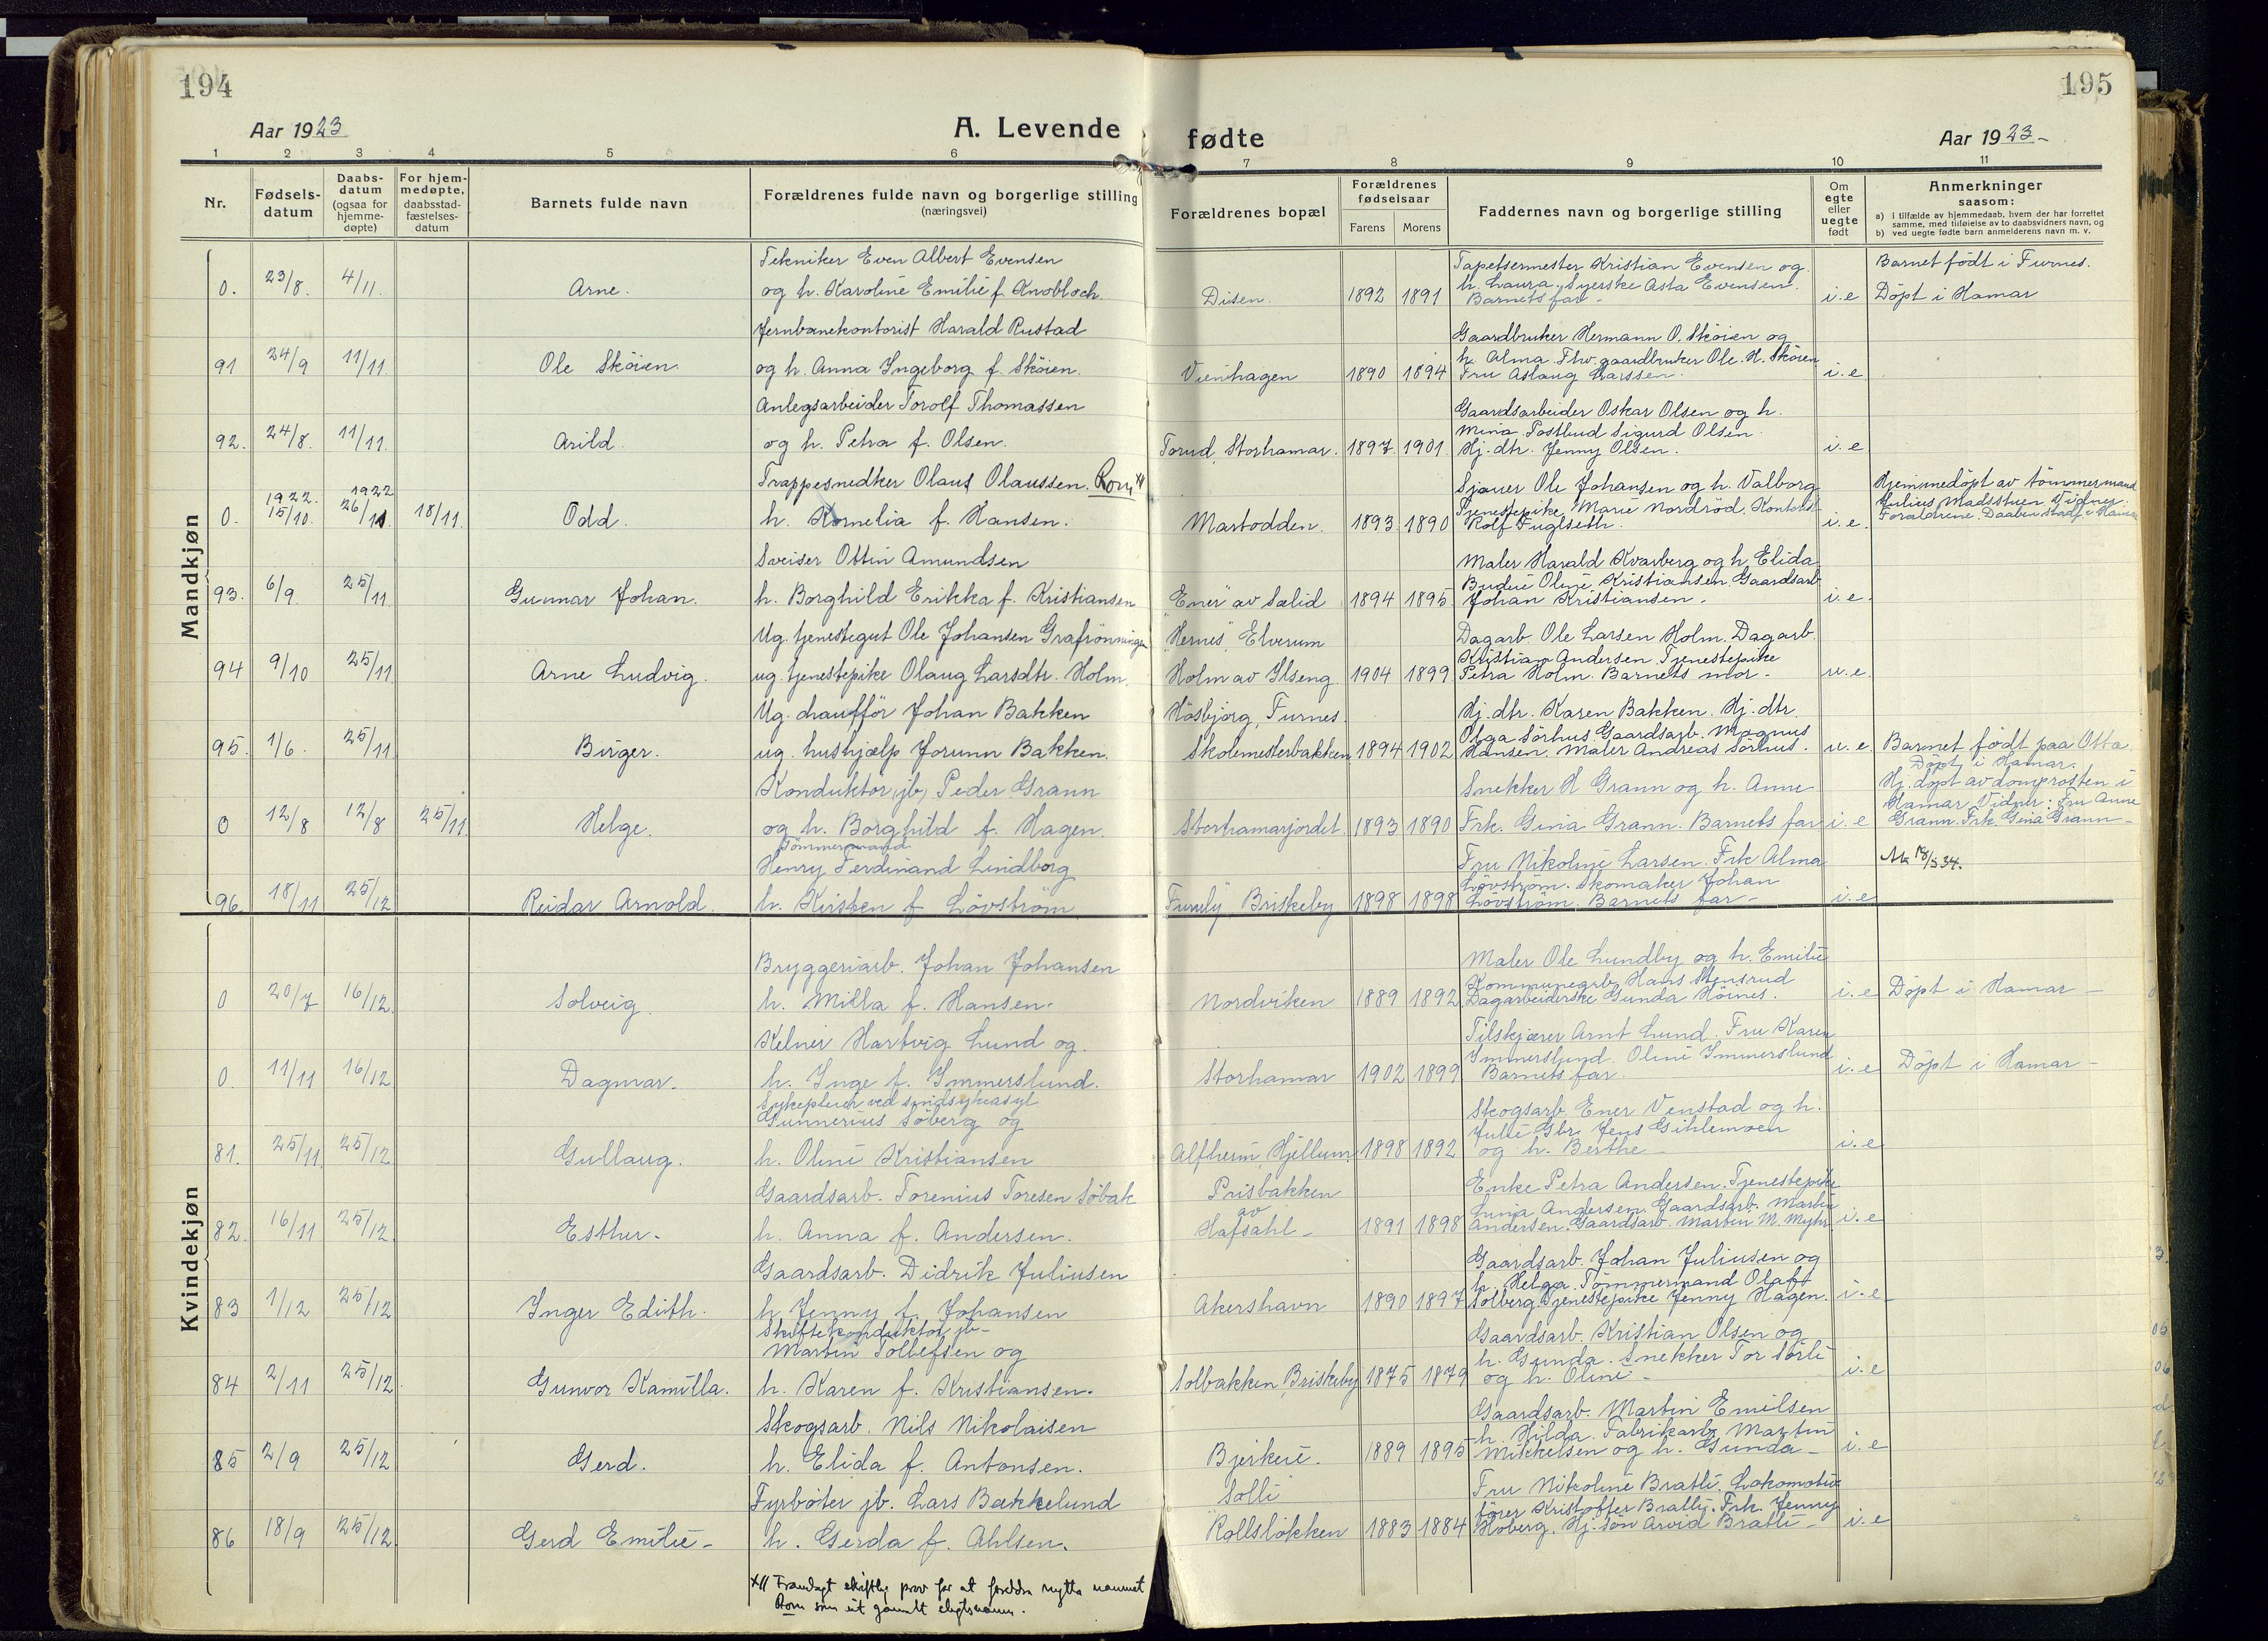 194
195
Aar 1923
A. Levende fødte
Aar 1923
1 2 3 4 5 6 7 8 9 10 11
Nr.
Fødsels-
datum
Daabs-
datum
(ogsaa for
hjemme-
døpte)
For hjem-
medøpte,
daabsstad-
fæstelses-
datum
Barnets fulde navn
Forældrenes fulde navn og borgerlige stilling
(næringsvei)
Forældrenes bopæl
Forældrenes
fødselsaar
Farens Morens
Faddernes navn og borgerlige stilling
Om
egte
eller
uegte
født
Anmerkninger
saasom:
a) i tilfælde av hjemmedaab, hvem der har forrettet
samme, med tilføielse av to daabsvidners navn, og
b) ved uegte fødte barn anmelderens navn m. v.
Mandkjøn
Tekniker Even Albert Evensen
0. 23/8. 4/11. Arne. og h. Karoline Emilie f. Knobloch.
Disen. 1892 1891
Tapetsermester Kristian Evensen og
h. Laura, Syerske Asta Evensen.
Barnets far.
i.e
Barnet født i Furnes.
Döpt i Hamar
Jernbanekontorist Harald Rustad
91 24/9 11/11. Ole Sköien. og h. Anna Ingeborg f. Sköien.
Vienhagen 1890 1894
Gaardbruker Hermann O. Sköien og
h. Alma. Fhv. gaardbruker Ole H. Sköien
Fru Aslaug Larssen.
i.e
Anlegsarbeider Torolf Thomassen
92. 24/8. 11/11. Arild. og h. Petra f. Olsen.
Torud, Storhamar. 1897. 1901
Gaardsarbeider Oskar Olsen og h.
Mina. Postbud Sigurd Olsen
Hj. dtr. Jenny Olsen.
i.e
Trappesnedker Olaus Olaussen. Rom x)
0. 1922. 15/10. 1922 26/11 18/11. Odd. h. Kornelia f. Hansen.
Martodden. 1893 1890
Sjauer Ole Johansen og h. Valborg
Tjenestepike Marie Nordröd. Kontorist
Rolf Fuglseth.
i.e.
Hjemmedöpt av tömmermand
Julius Madsstuen. Vidner:
Foraldrene. Daaben stadf. i Hamar
Sveiser Ottin Amundsen
93. 6/9. 25/11. Gunnar Johan. h. Borghild Erikka f. Kristiansen
"Ener" av Sælid 1894 1895
Maler Harald Kvarberg og h. Elida
Budeie Oline Kristiansen. Gaardsarb
Johan Kristiansen.
i.e.
Ug. tjenestegut Ole Johansen Grafrönningen
"Hernes", Elverum
94 9/10 25/11. Arne Ludvig. ug. tjenestepike Olaug Larsdtr. Holm.
Holm av Ilseng. 1904 1899
Dagarb. Ole Larsen Holm. Dagarb.
Kristian Andersen. Tjenestepike
Petra Holm. Barnets mor.
u.e.
Ug. chaufför Johan Bakken
Hösbjörg, Furnes.
95. 1/6. 25/11 Birger. ug. hushjælp Jorunn Bakken.
Skolemesterbakken 1894 1902
Hj. dtr. Karen Bakken. Hj. dtr.
Olga Sörhus. Gaardsarb. Magnus
Hansen. Maler Andreas Sörhus.
u.e.
Barnet födt paa Otta.
Döpt i Hamar.
Konduktör (jb) Peder Grann
0 12/8 12/8 25/11. Helge. og h. Borghild f. Hagen.
Storhamarjordet 1893 1890
Snekker H Grann og h. Anne
Frk. Gina Grann. Barnets far
i.e
Hj. döpt av domprosten i
Hamar. Vidner: Fru Anne
Grann. Frk. Gina Grann
Tömmermand
Henry Ferdinand Lindborg
96. 18/11 25/12 Reidar Arnold. h. Kirsten f. Lövström
Furuly, Briskeby 1898 1898
Fru Nikoline Larsen. Frk Alma
Lövström. Skomaker Johan
Lövström. Barnets far
i.e
Ak 18/5 34.
Kvindekjøn
Bryggeriarb. Johan Johansen
0 20/7 16/12. Solveig. h. Milla f. Hansen.
Nordviken 1889 1892
Maler Ole Lundby og h. Emilie
Kommunearb. Hans Stensrud
Dagarbeiderske Gunda Höines.
i.e
Döpt i Hamar
Kelner Hartvig Lund og.
0. 11/11 16/12 Dagmar. h. Inge f. Immerslund.
Storhamar 1902 1899
Tilskjærer Arnt Lund. Fru Karen
Immerslund. Oline Immerslund
Barnets far.
i.e
Döpt i Hamar
Sykepleier ved sindsykeasyl
Gunnerius Söberg og
81. 25/11. 25/12 Gullaug. h. Oline Kristiansen
Alfheim, Hjellum. 1898 1892
Skogsarb. Ener Venstad og h.
Julie Gbr. Jens Gihlemoen
og h. Berthe
i.e
Gaardsarb. Torenius Toresen Söbak
82. 16/11 25/12 Esther. h. Anna f. Andersen.
Prisbakken
av
Hafsahl 1891 1898
Enke Petra Andersen. Tjenestepike
Luna Andersen. Gaardsarb. Martin
Andersen. Gaardsarb. Martin M. Myhr.
i.e
Gaardsarb. Didrik Juliusen
83 1/12 25/12 Inger Edith. h. Jenny f. Johansen
Akershavn 1890 1897
Gaardsarb. Johan Juliusen og
h. Helga. Tömmermand Olaf
Solberg. Tjenestepike Jenny Hagen.
i.e
Skiftekonduktör jb
Martin Tollefsen og
84 2/11 25/12. Gunvor Kamilla. h. Karen f. Kristiansen.
Solbakken, Briskeby 1875 1879
Gaardsarb. Kristian Olsen og
h. Gunda. Snekker Tor Sörli
og h. Oline
i.e
Skogsarb. Nils Nikolaisen
85 2/9 25/12 Gerd. h. Elida f. Antonsen.
Bjerkeie. 1889 1895
Gaardsarb. Martin Emilsen
h. Hilda. Fabrikarb. Martin
Mikkelsen og h. Gunda
i.e
Fyrböter jb. Lars Bakkelund
86 18/9 25/12 Gerd Emilie h. Gerda f. Ahlsen.
Solli
Rollslökken 1883 1884
Fru Nikoline Bratli. Lokomotiv
förer Kristoffer Bratli. Frk. Jenny
Hoberg. Hj. sön Arvid Bratli
i.e
x) Framlagt skriftleg prov for at foreldra nytta namnet
Rom som eit gamalt slegtsnamn.